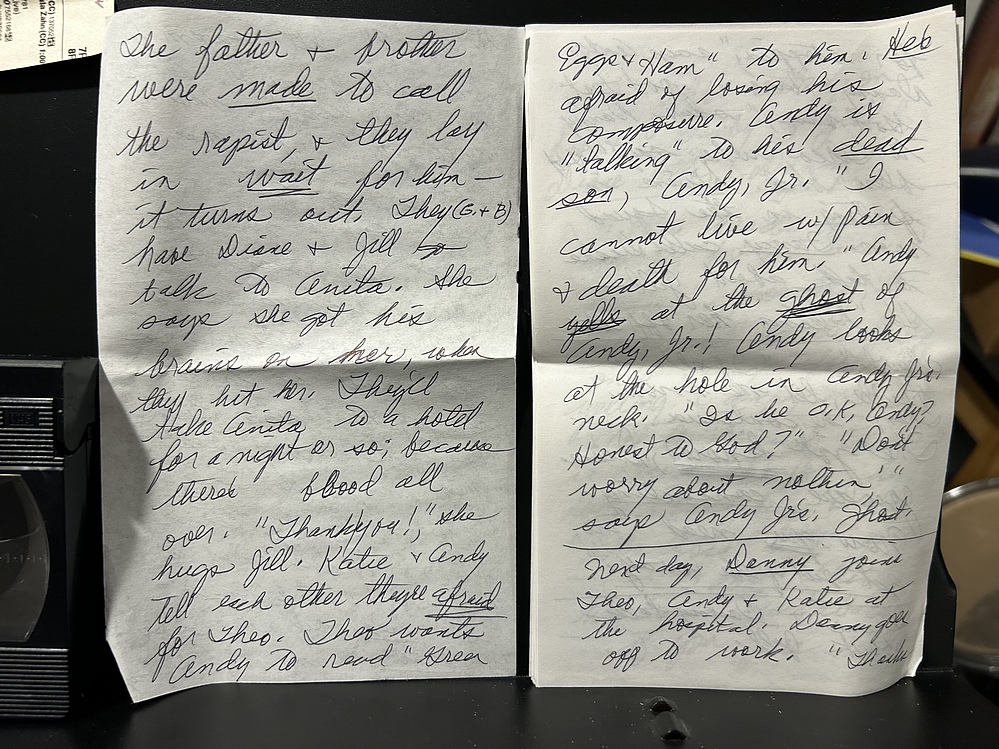 The father + brother
were made to call
the rapist, + they lay
in wait for him —
it turns out. They (G. + B)
have Diane + Jill
talk to Anita. She
says she got his
brains on her, when
they hit her. They'll
take Anita to a hotel
for a night or so; because
there's blood all
over. "Thankyou!," she
hugs Jill. Katie + Andy
tell each other they're afraid
for Theo. Theo wants
Andy to read "Green
Eggs + Ham" to him. He's
afraid of losing his
composure. Andy is
"talking" to his dead
son, Andy, Jr. "I
cannot live w/ pain
+ death for him." Andy
yells at the ghost of
Andy, Jr.! Andy looks
at the hole in Andy Jr's.
neck. "Is he O.K, Andy?
Honest to God?" "Don't
worry about nothin'"
says Andy Jr's. ghost.
Next day, Danny joins
Theo, Andy + Katie at
the hospital. Danny goes
off to work. "Thanks